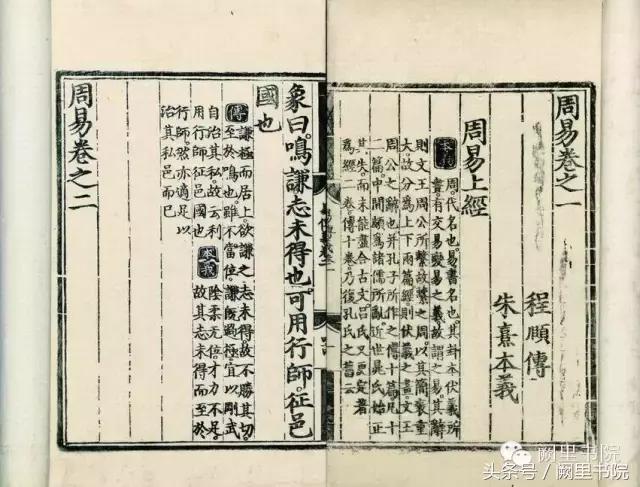 周易卷之一
程頤傳
朱熹本義
周易上經
本義
周代名也。易書名也。其卦本伏羲所
畫。有交易變易之義。故謂之易。其辭
則文王周公所繫。故繫之周。以其簡袠重
大。故分爲上下兩篇。經則伏羲之畫。文王
周公之辭也。并孔子所作之傳十篇。凡十
二篇。中間頗爲諸儒所亂。近世晁氏始正
其失。而未能盡合古文。呂氏又更定著
爲經二卷。傳十卷。乃復孔氏之舊云
象曰。鳴謙。志未得也。可用行師。征邑
國也
傳
謙極而居上。欲謙之志未得。故不勝其切。
至於鳴也。雖不當位。謙旣過極。宜以剛武
自治其私。故云利
用行師征邑國也
本義
陰柔无位。才力不足。
故其志未得。而至於
行師。然亦適足以
治其私邑而已
周易卷之二
阙里书院
头条号 / 阙里书院